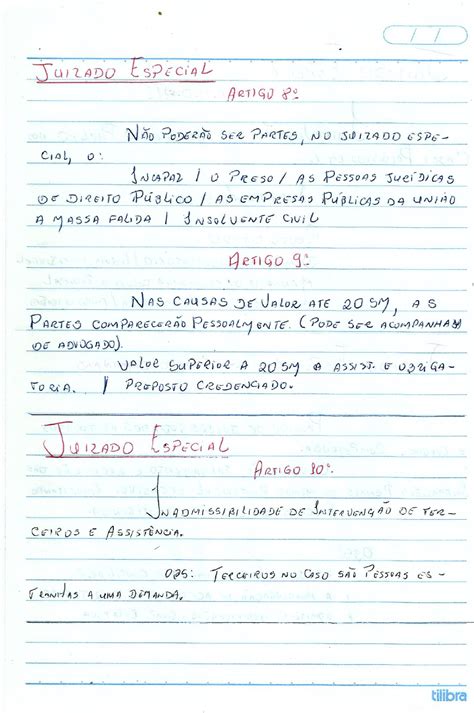 / /
JUIZADO ESPECIAL
ARTIGO 8º
NÃO PODERÃO SER PARTES, NO JUIZADO ESPE-
CIAL, O:
INCAPAZ / O PRESO / AS PESSOAS JURÍDICAS
DE DIREITO PÚBLICO / AS EMPRESAS PÚBLICAS DA UNIÃO
A MASSA FALIDA / INSOLVENTE CIVIL
ARTIGO 9º
NAS CAUSAS DE VALOR ATÉ 20 SM, AS
PARTES COMPARECERÃO PESSOALMENTE. (PODE SER ACOMPANHAM
DE ADVOGADO).
VALOR SUPERIOR A 20 SM A ASSIST. E OBRIGA-
TORIA. / PREPOSTO CREDENCIADO.
JUIZADO ESPECIAL
ARTIGO 10º:
INADMISSIBILIDADE DE INTERVENÇÃO DE TER-
CEIROS E ASSISTÊNCIA.
OBS: TERCEIROS NO CASO SÃO PESSOAS ES-
TRANHAS A UMA DEMANDA.
tilibra